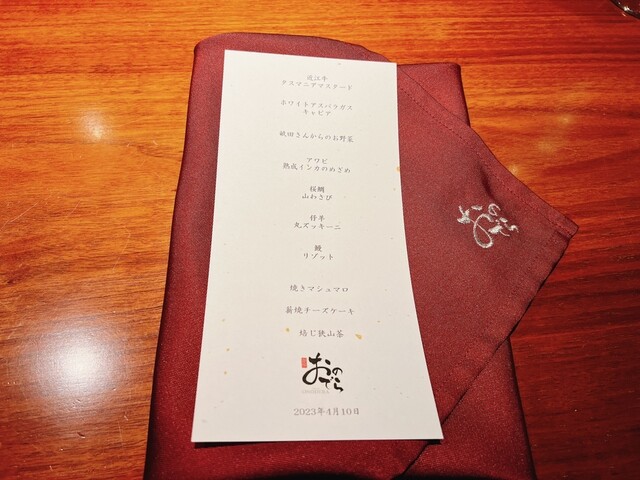 近江牛
タスマニアマスタード
ホワイトアスパラガス
キャビア
祇園さんからのお野菜
アワビ
熟成インカのめざめ
桜鯛
山わさび
特牛
丸ズッキーニ
鰻
リゾット
焼きマシュマロ
薪焼チーズケーキ
焙じ狭山茶
おのでら
2023年4月10日